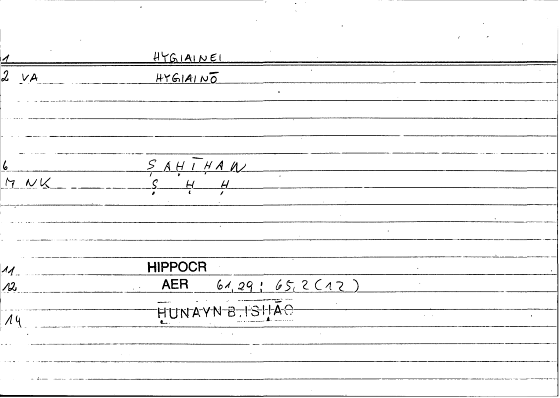 1 HYGIAINEI
2 VA HYGIAINŌ
6 ṢAḤĪḤAN
M NK Ṣ Ḥ Ḥ
11 HIPPOCR
12 AER 61,29 : 65,2 (12)
14 ḤUNAYN B. ISḤĀQ